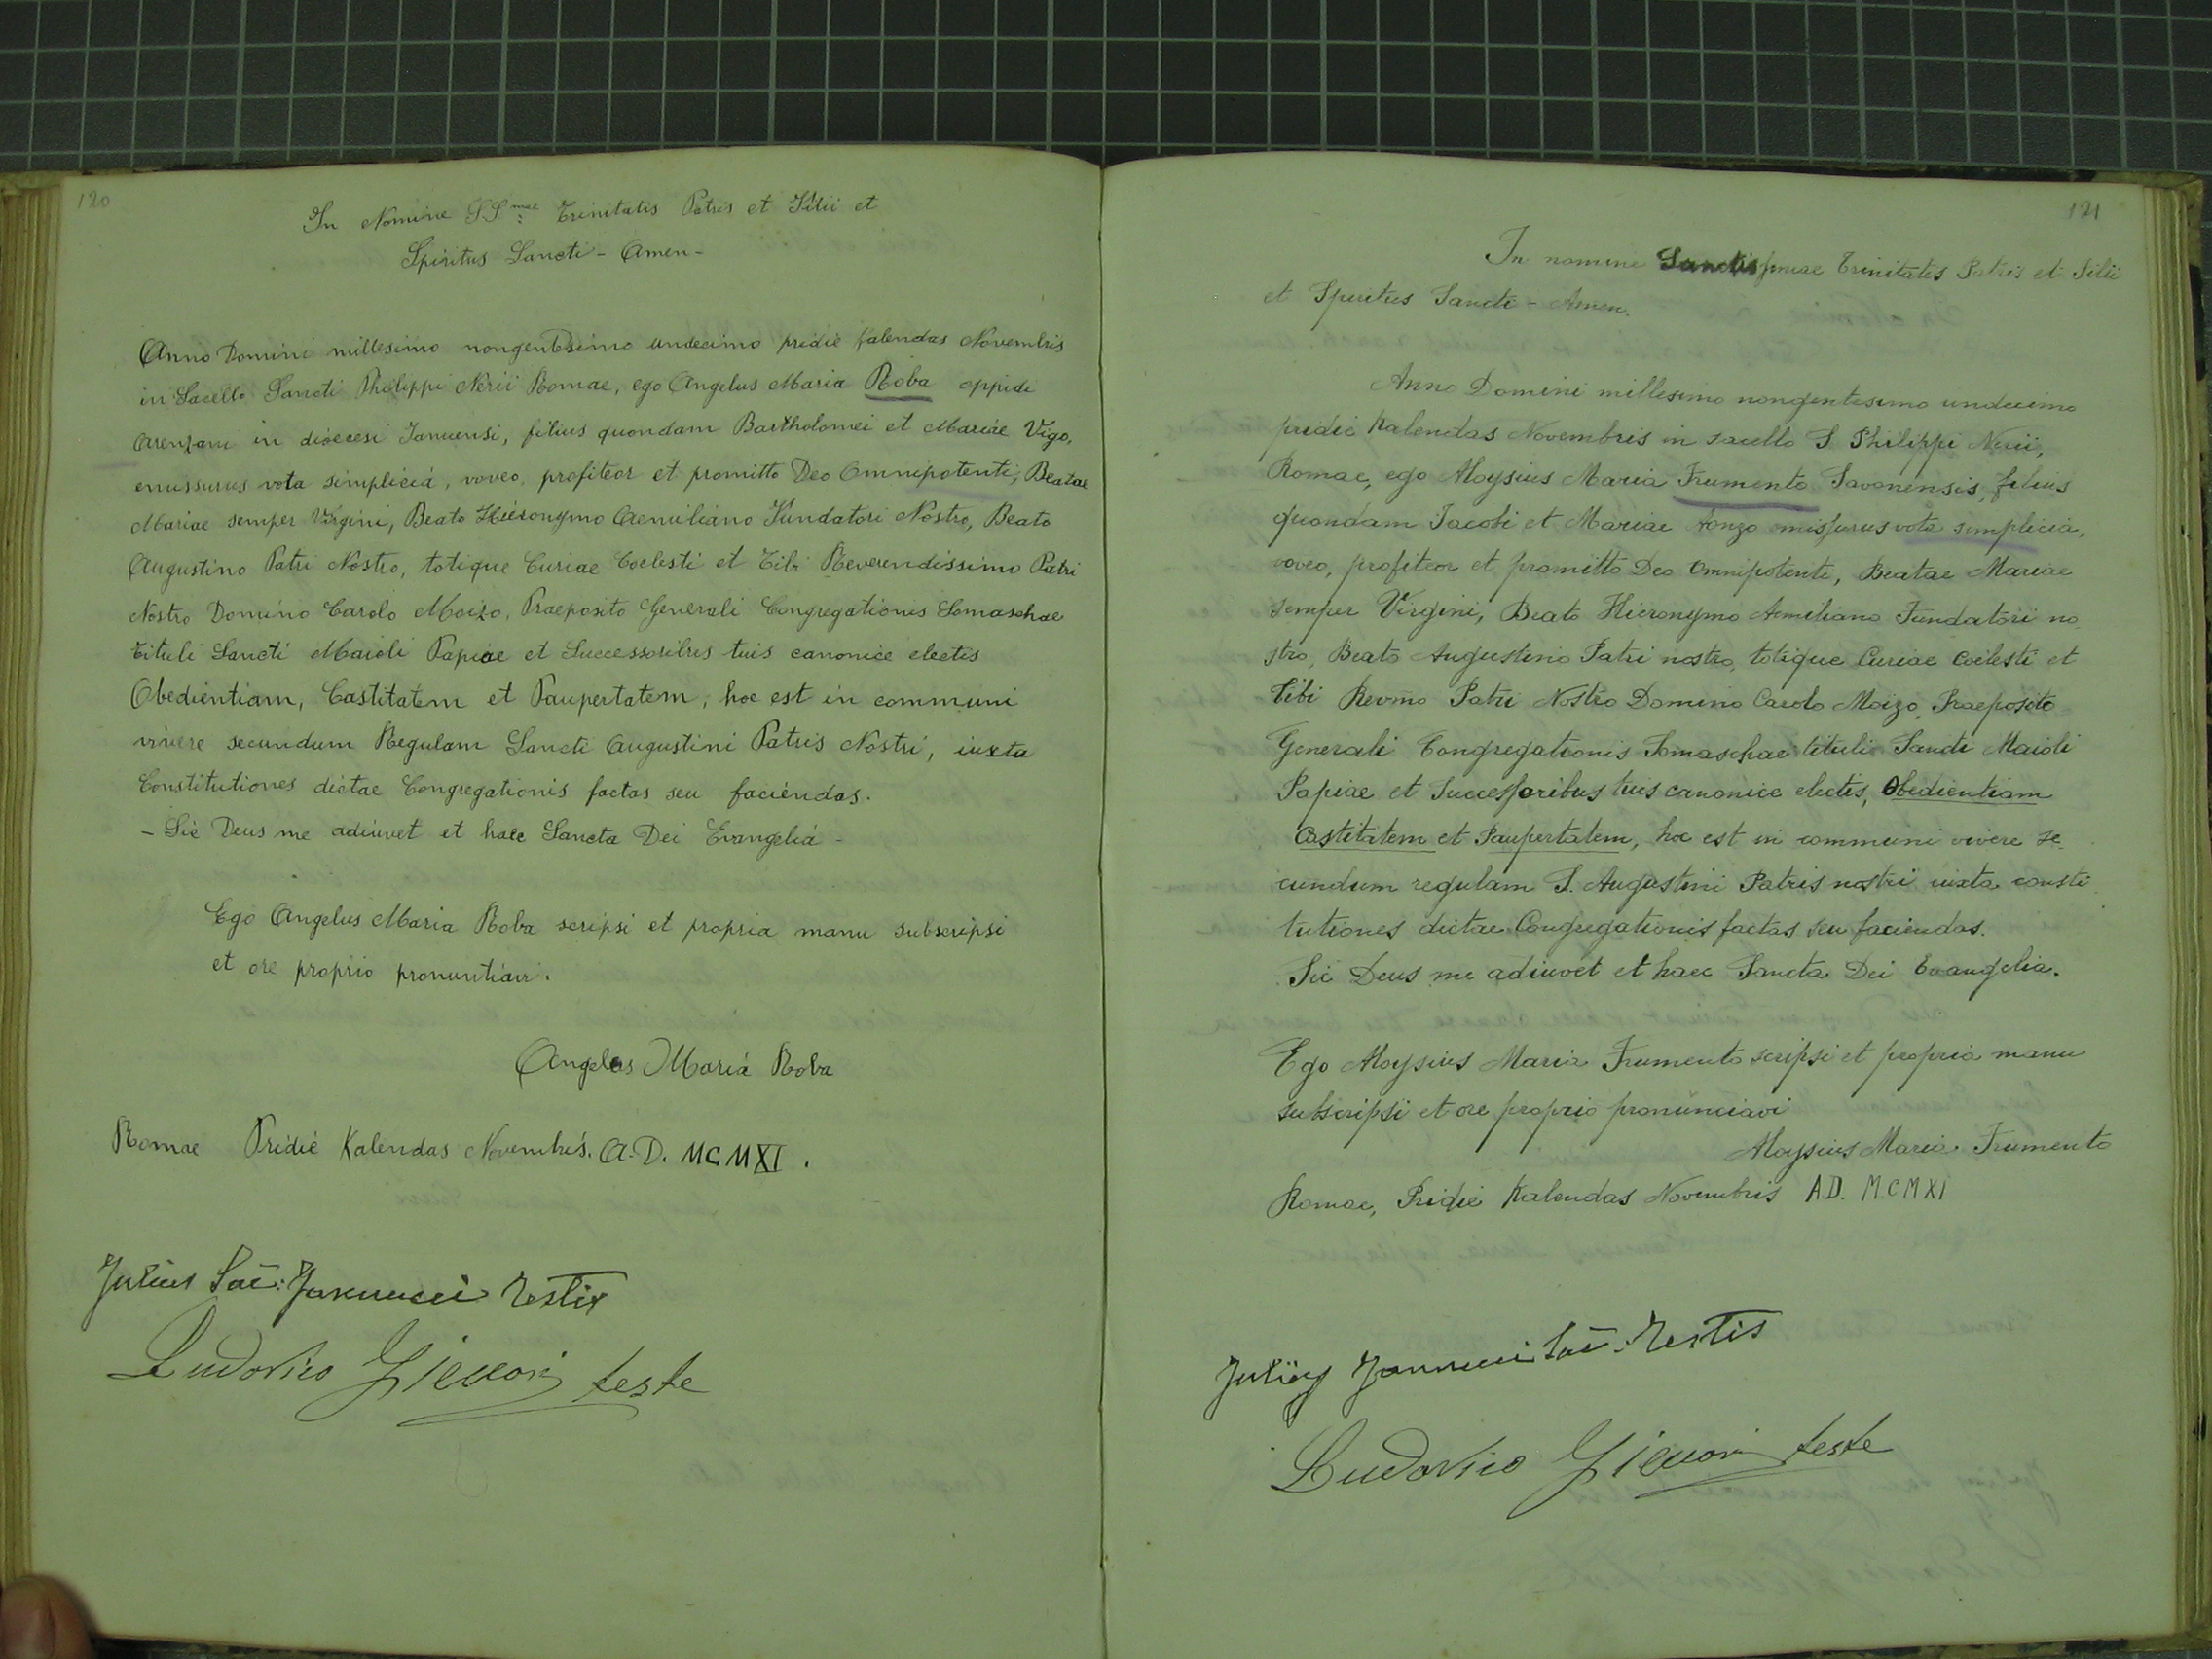 120
In Nomine S.S.mae Trinitatis Patris et Filii et
Spiritus Sancti - Amen -
Anno Domini millesimo nongentesimo undecimo pridie Kalendas Novembris
in Sacello Sancti Philippi Nerii Romae, ego Angelus Maria Roba oppidi
Arenzani in dioecesi Januensi, filius quondam Bartholomei et Mariae Vigo,
emissurus vota simplicia, voveo, profiteor et promitto Deo Omnipotenti, Beatae
Mariae semper Virgini, Beato Hieronymo Aemiliano Fundatori Nostro, Beato
Augustino Patri Nostro, totique Curiae Coelesti et Tibi Reverendissimo Patri
Nostro Domino Carolo Moizo, Praeposito Generali Congregationis Somaschae
tituli Sancti Maioli Papiae et Successoribus tuis canonice electis
Obedientiam, Castitatem et Paupertatem, hoc est in communi
vivere secundum Regulam Sancti Augustini Patris Nostri, iuxta
Constitutiones dictae Congregationis factas seu faciendas.
- Sic Deus me adiuvet et haec Sancta Dei Evangelia -
Ego Angelus Maria Roba scripsi et propria manu subscripsi
et ore proprio pronuntiavi.
Angelus Maria Roba
Romae Pridie Kalendas Novembris. A.D. MCMXI.
Julius Sac: Jannucci Testis
Ludovico teste
121
In nomine Sanctissimae Trinitatis Patris et Filii
et Spiritus Sancti - Amen.
Anno Domini millesimo nongentesimo undecimo
pridie Kalendas Novembris in sacello S. Philippi Nerii,
Romae, ego Aloysius Maria Frumento Savonensis, filius
quondam Jacobi et Mariae Aonzo emissurus vota simplicia,
voveo, profiteor et promitto Deo Omnipotenti, Beatae Mariae
semper Virgini, Beato Hieronymo Aemiliano Fundatori no
stro, Beato Augustino Patri nostro, totique Curiae Coelesti et
tibi Revmo Patri Nostro Domino Carolo Moizo, Praeposito
Generali Congregationis Somaschae tituli Sancti Maioli
Papiae et Successoribus tuis canonice electis, Obedientiam
Castitatem et Paupertatem, hoc est in communi vivere se
cundum regulam S. Augustini Patris nostri iuxta consti
tutiones dictae Congregationis factas seu faciendas.
Sic Deus me adiuvet et haec Sancta Dei Evangelia.
Ego Aloysius Maria Frumento scripsi et propria manu
subscripsi et ore proprio pronunciavi
Aloysius Maria Frumento
Romae, Pridie Kalendas Novembris A.D. MCMXI
Julius Jannucci Sac: Testis
Ludovico teste